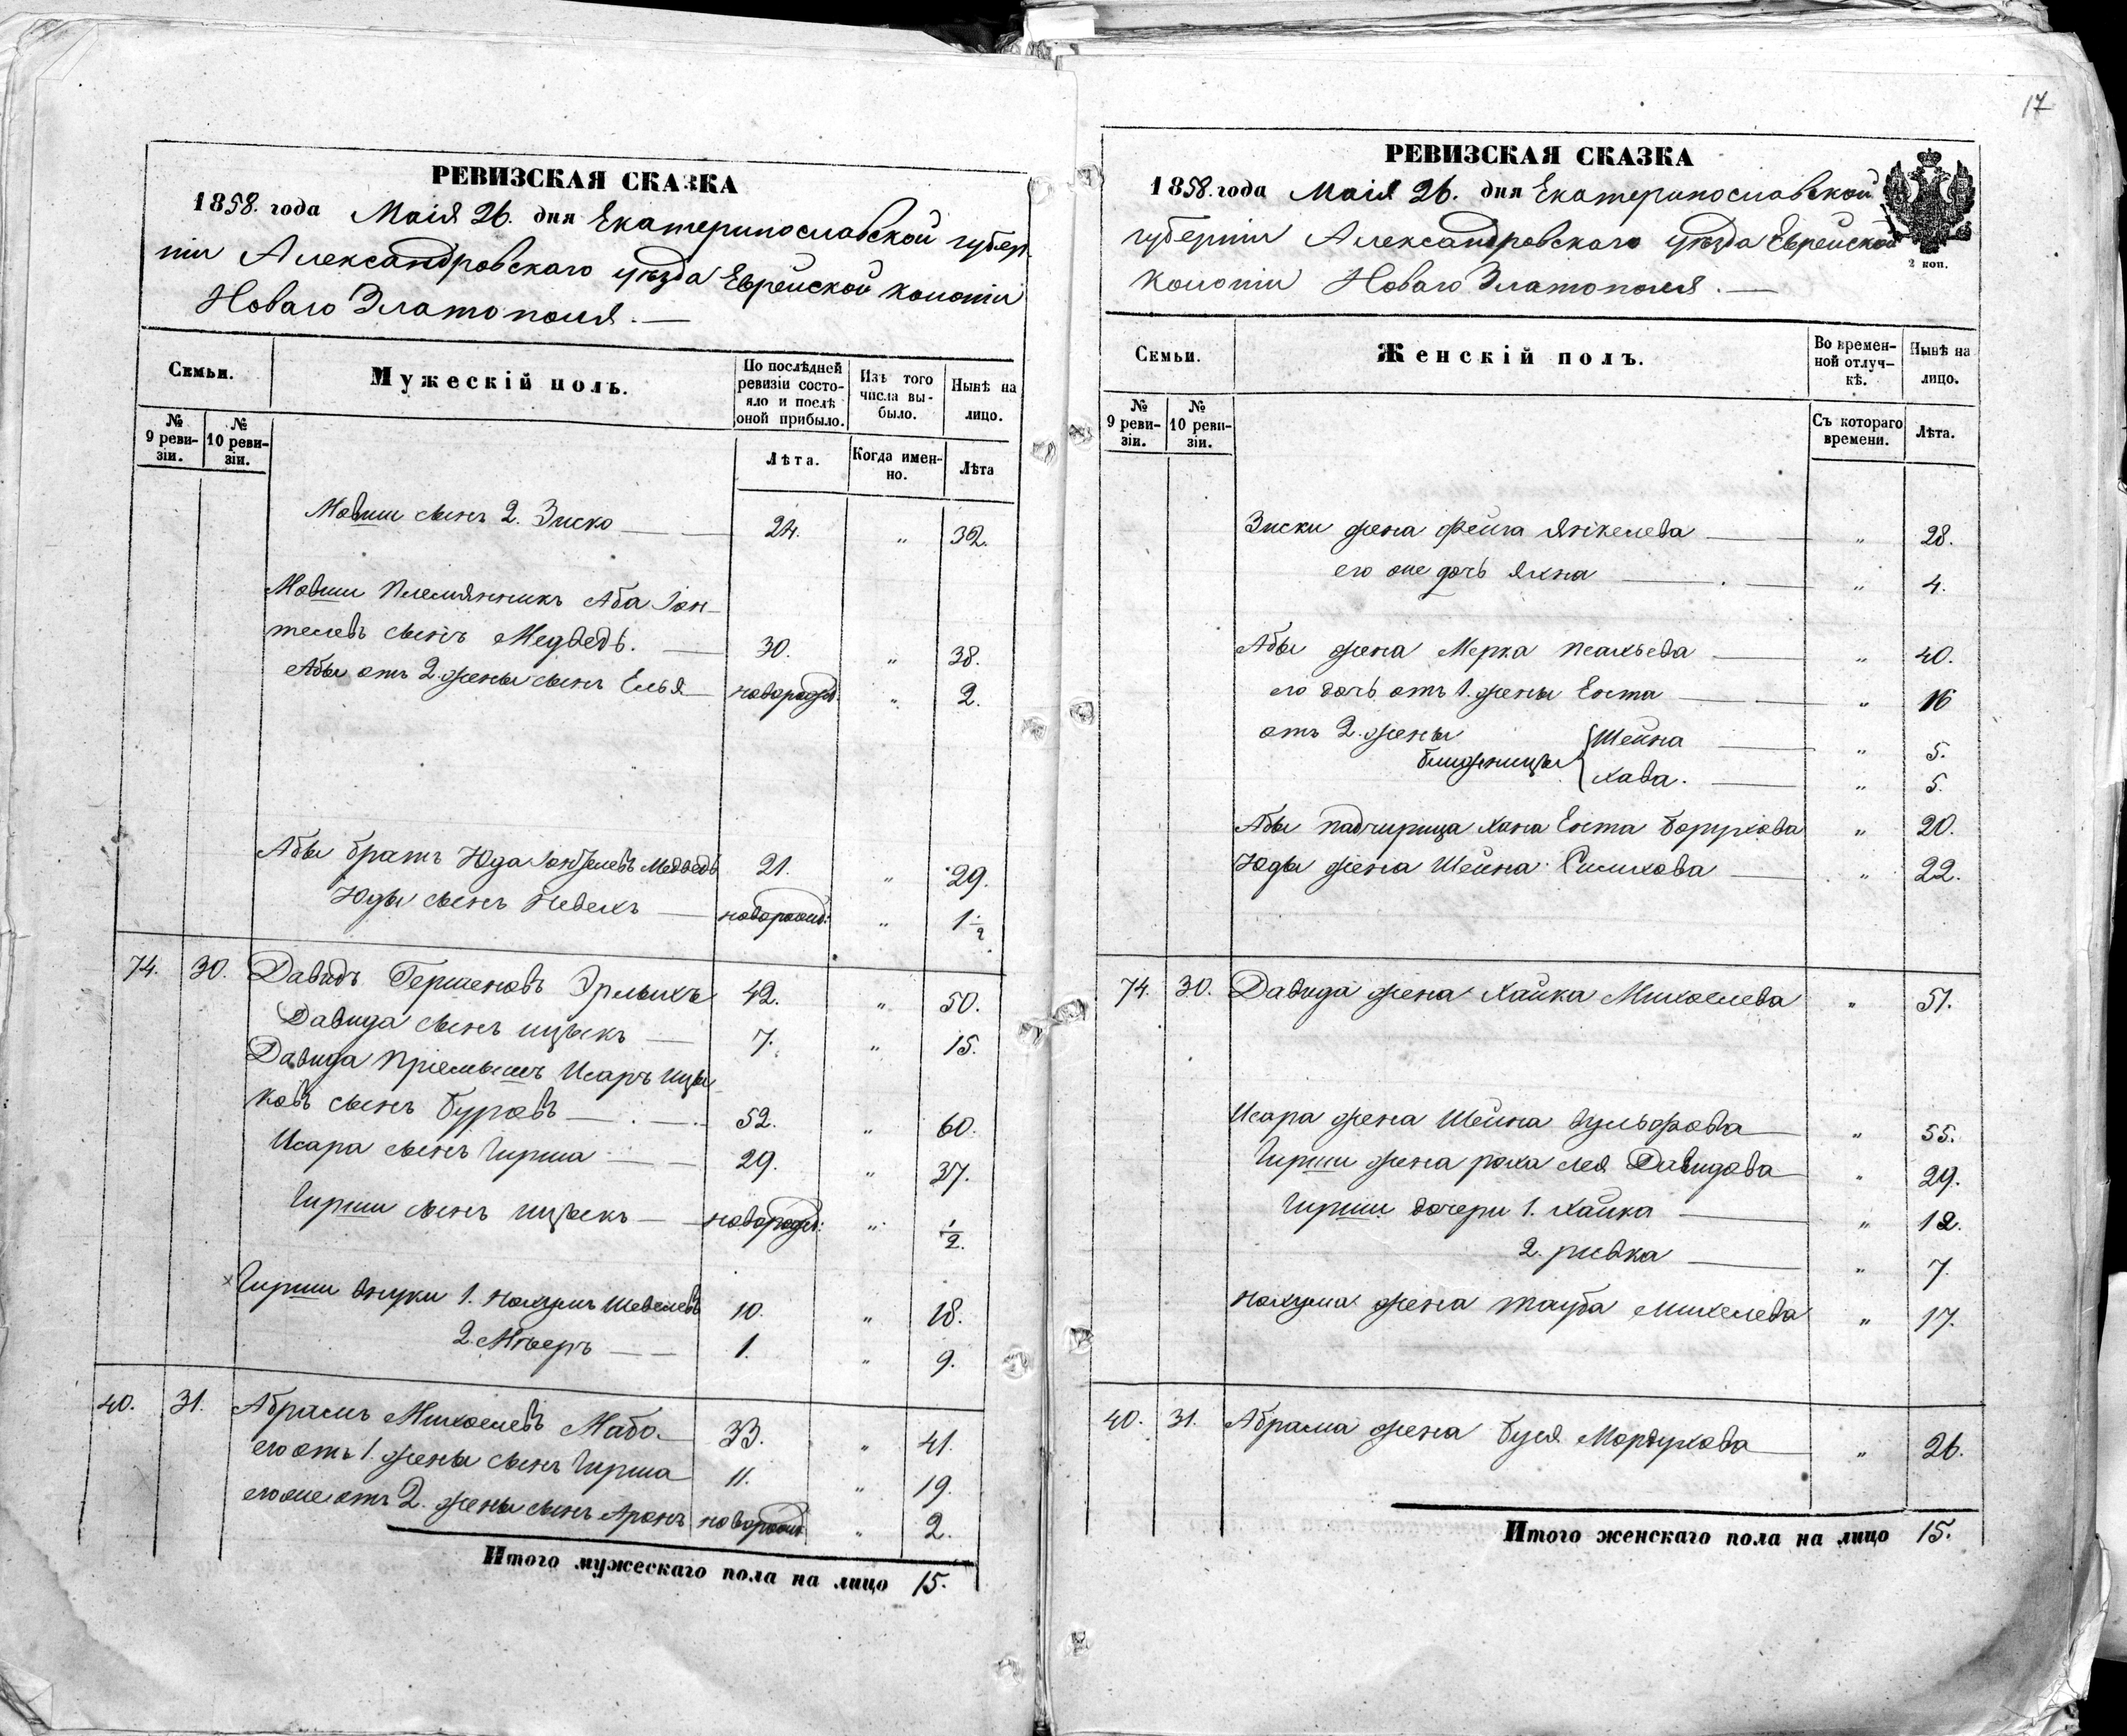 17
РЕВИЗСКАЯ СКАЗКА
1858. года Маія 26. дня Екатеринославской губер-
ніи Александровскаго уѣзда Еврейской колоніи
Новаго Златополя. —
Семьи.
Мужескій полъ.
По послѣдней ревизіи состояло и послѣ оной прибыло.
Изъ того числа выбыло.
Нынѣ на лицо.
№ 9 ревизіи.
№ 10 ревизіи.
Лѣта.
Когда именно.
Лѣта
Мовши сынъ 2. Зиско — 24. " 32.
Мовши племянникъ Аба Іон-
телевъ сынъ Медведь. — 30. " 38.
Абы отъ 2. жены сынъ Елья — новорожд. " 2.
Абы братъ Юда Іонтелевъ Медведь 21. " 29.
Юды сынъ — новорожд. " 1 1/2
74. 30. Давидъ Гершеновъ Эрлыхъ 42. " 50.
Давида сынъ ицыкъ — 7. " 15.
Давида пріемышъ Исаръ ицы-
ковъ сынъ Буровъ — 52. " 60.
Исара сынъ Гирша — 29. " 37.
Гирши сынъ ицыкъ — новорожд: " 1/2.
Гирши внуки 1. нахумъ Шевелевъ 10. " 18.
2. Мееръ — 1. " 9.
40. 31. Абрамъ Михелевъ Мабо. 33. " 41.
его отъ 1. жены сынъ Гирша 11. " 19.
его же отъ 2. жены сынъ Аронъ новорожд. " 2.
Итого мужескаго пола на лицо 15.
РЕВИЗСКАЯ СКАЗКА
1858. года Маія 26. дня Екатеринославской
губерніи Александровскаго уѣзда Еврейской
колоніи Новаго Златополя. —
2 коп.
Семьи.
Женскій полъ.
Во временной отлучкѣ.
Нынѣ на лицо.
№ 9 ревизіи.
№ 10 ревизіи.
Съ котораго времени.
Лѣта.
Зиски жена Фейга Янкелева — " 28.
его же дочь Яхна — " 4.
Абы жена Мерка — " 40.
его дочь отъ 1. жены Ента — " 16
отъ 2. жены Шейна — " 5.
близницы Хава. — " 5.
Абы падчирица Хана Ента Борухова " 20.
Юды жена Шейна — " 22.
74. 30. Давида жена Хайка Михелева " 51.
Исара жена Шейна Вульфовна — " 55.
Гирши жена роха лея Давидова — " 29.
Гирши дочери 1. Хайка — " 12.
2. ривка — " 7.
нахума жена тауба Михелева " 17.
40. 31. Абрама жена Буся Мордухова — " 26.
Итого женскаго пола на лицо 15.